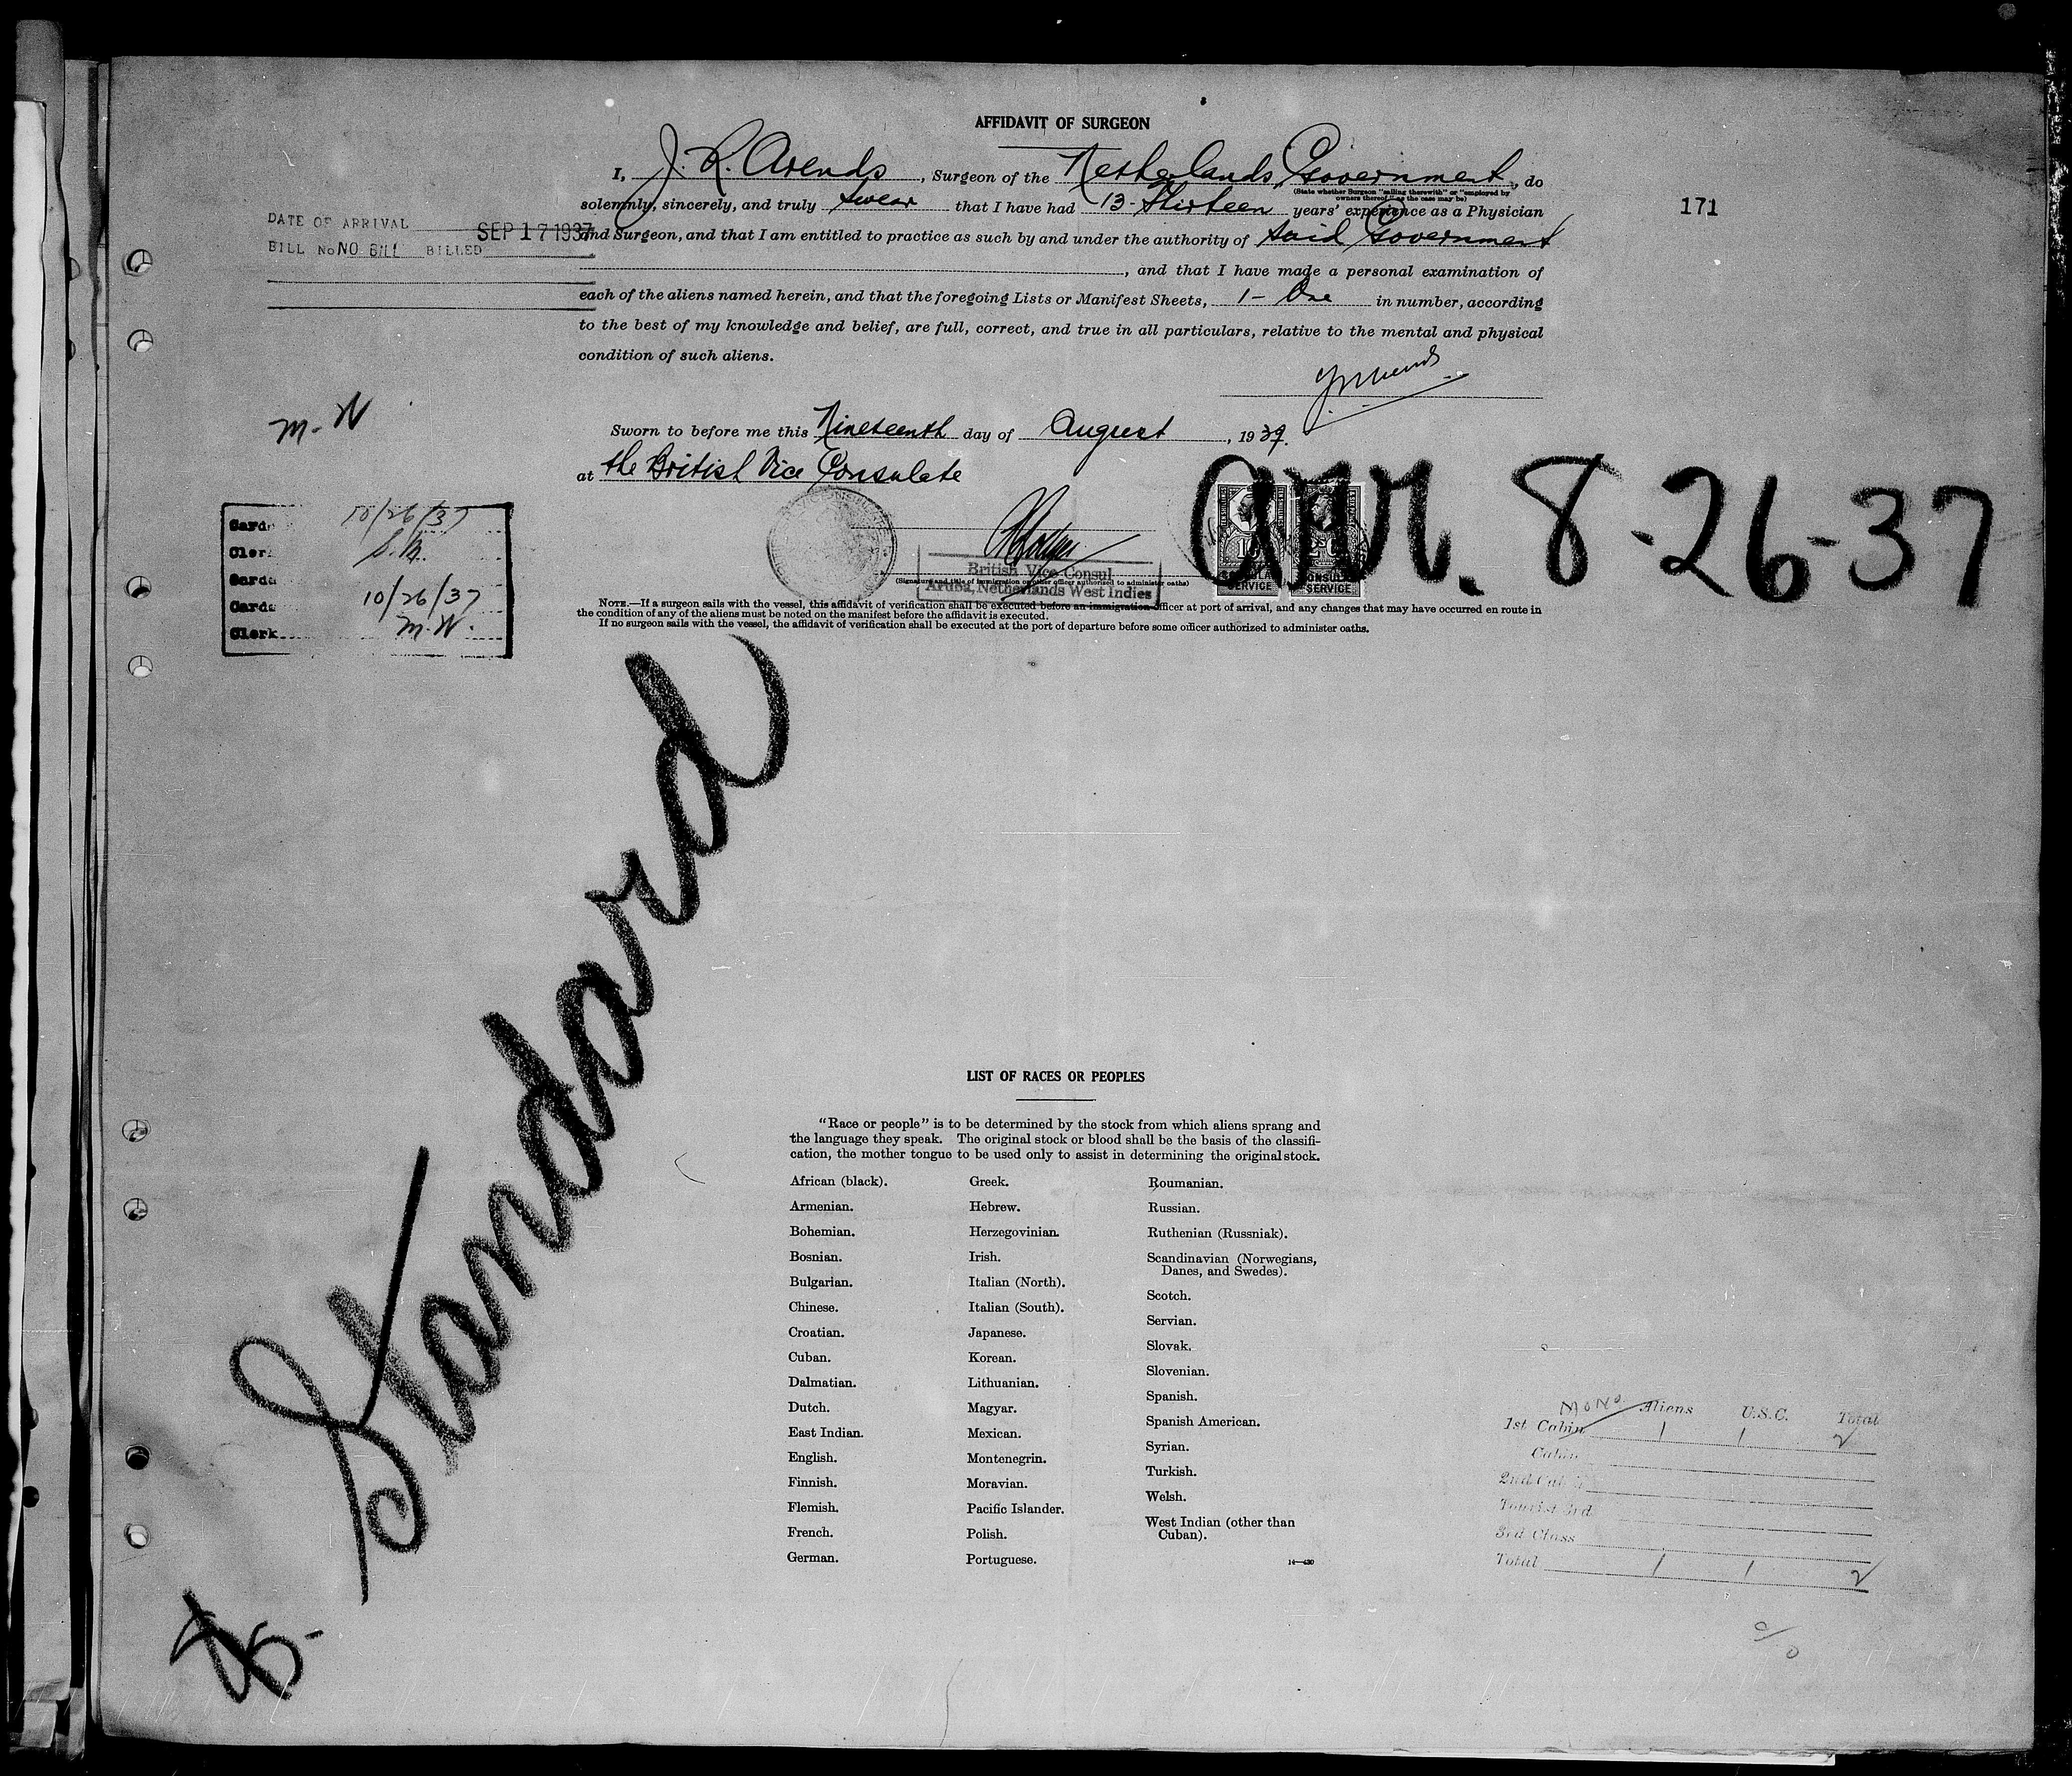 AFFIDAVIT OF SURGEON
I, J. R. Arends, Surgeon of the Netherlands Government, do
(State whether Surgeon "sailing therewith" or "employed by owners thereof," as the case may be)
solemnly, sincerely, and truly swear that I have had 13 - Thirteen years' experience as a Physician
and Surgeon, and that I am entitled to practice as such by and under the authority of said Government
, and that I have made a personal examination of
each of the aliens named herein, and that the foregoing Lists or Manifest Sheets, 1 - One in number, according
to the best of my knowledge and belief, are full, correct, and true in all particulars, relative to the mental and physical
condition of such aliens.
171
DATE OF ARRIVAL SEP 17 1937
BILL No NO BILL BILLED
M-W
Sworn to before me this Nineteenth day of August, 1937.
at the British Vice Consulate
British Vice-Consul
Aruba, Netherlands West Indies
(Signature and title of immigration or other officer authorized to administer oaths)
CONSULAR SERVICE
CONSULAR SERVICE
arr. 8-26-37
Card 10/26/37
Cler
Card
Card 10/26/37
Clerk M.W.
NOTE.—If a surgeon sails with the vessel, this affidavit of verification shall be executed before an immigration officer at port of arrival, and any changes that may have occurred en route in
the condition of any of the aliens must be noted on the manifest before the affidavit is executed.
If no surgeon sails with the vessel, the affidavit of verification shall be executed at the port of departure before some officer authorized to administer oaths.
Standard
LIST OF RACES OR PEOPLES
"Race or people" is to be determined by the stock from which aliens sprang and
the language they speak. The original stock or blood shall be the basis of the classifi-
cation, the mother tongue to be used only to assist in determining the original stock.
African (black).
Armenian.
Bohemian.
Bosnian.
Bulgarian.
Chinese.
Croatian.
Cuban.
Dalmatian.
Dutch.
East Indian.
English.
Finnish.
Flemish.
French.
German.
Greek.
Hebrew.
Herzegovinian.
Irish.
Italian (North).
Italian (South).
Japanese.
Korean.
Lithuanian.
Magyar.
Mexican.
Montenegrin.
Moravian.
Pacific Islander.
Polish.
Portuguese.
Roumanian.
Russian.
Ruthenian (Russniak).
Scandinavian (Norwegians,
Danes, and Swedes).
Scotch.
Servian.
Slovak.
Slovenian.
Spanish.
Spanish American.
Syrian.
Turkish.
Welsh.
West Indian (other than
Cuban).
14—430
Aliens U.S.C. Total
1st Cabin 1 1 2
Cabin
2nd Cabin
Tourist 3rd
3rd Class
Total 1 1 2